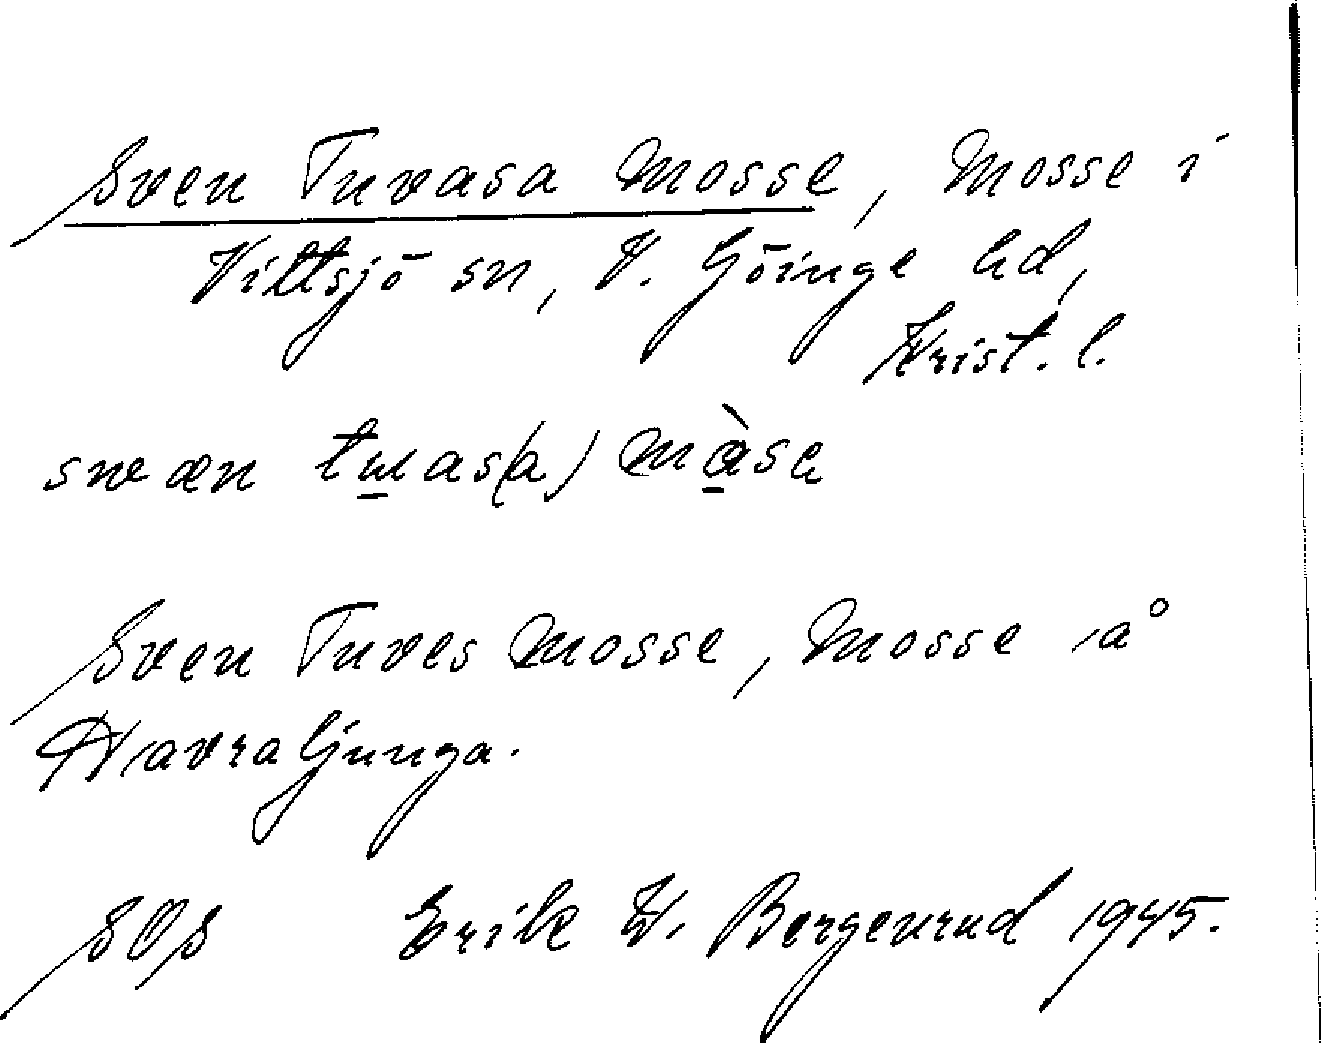 Sven Tuvasa Mosse, Mosse i
Vittsjö sn, V. Göinge hd,
Krist. l.
svæn tuvas(a) màsa
Sven Tuves Mosse, Mosse å
Havraljunga.
SOS Erik W. Bergenrud 1945.